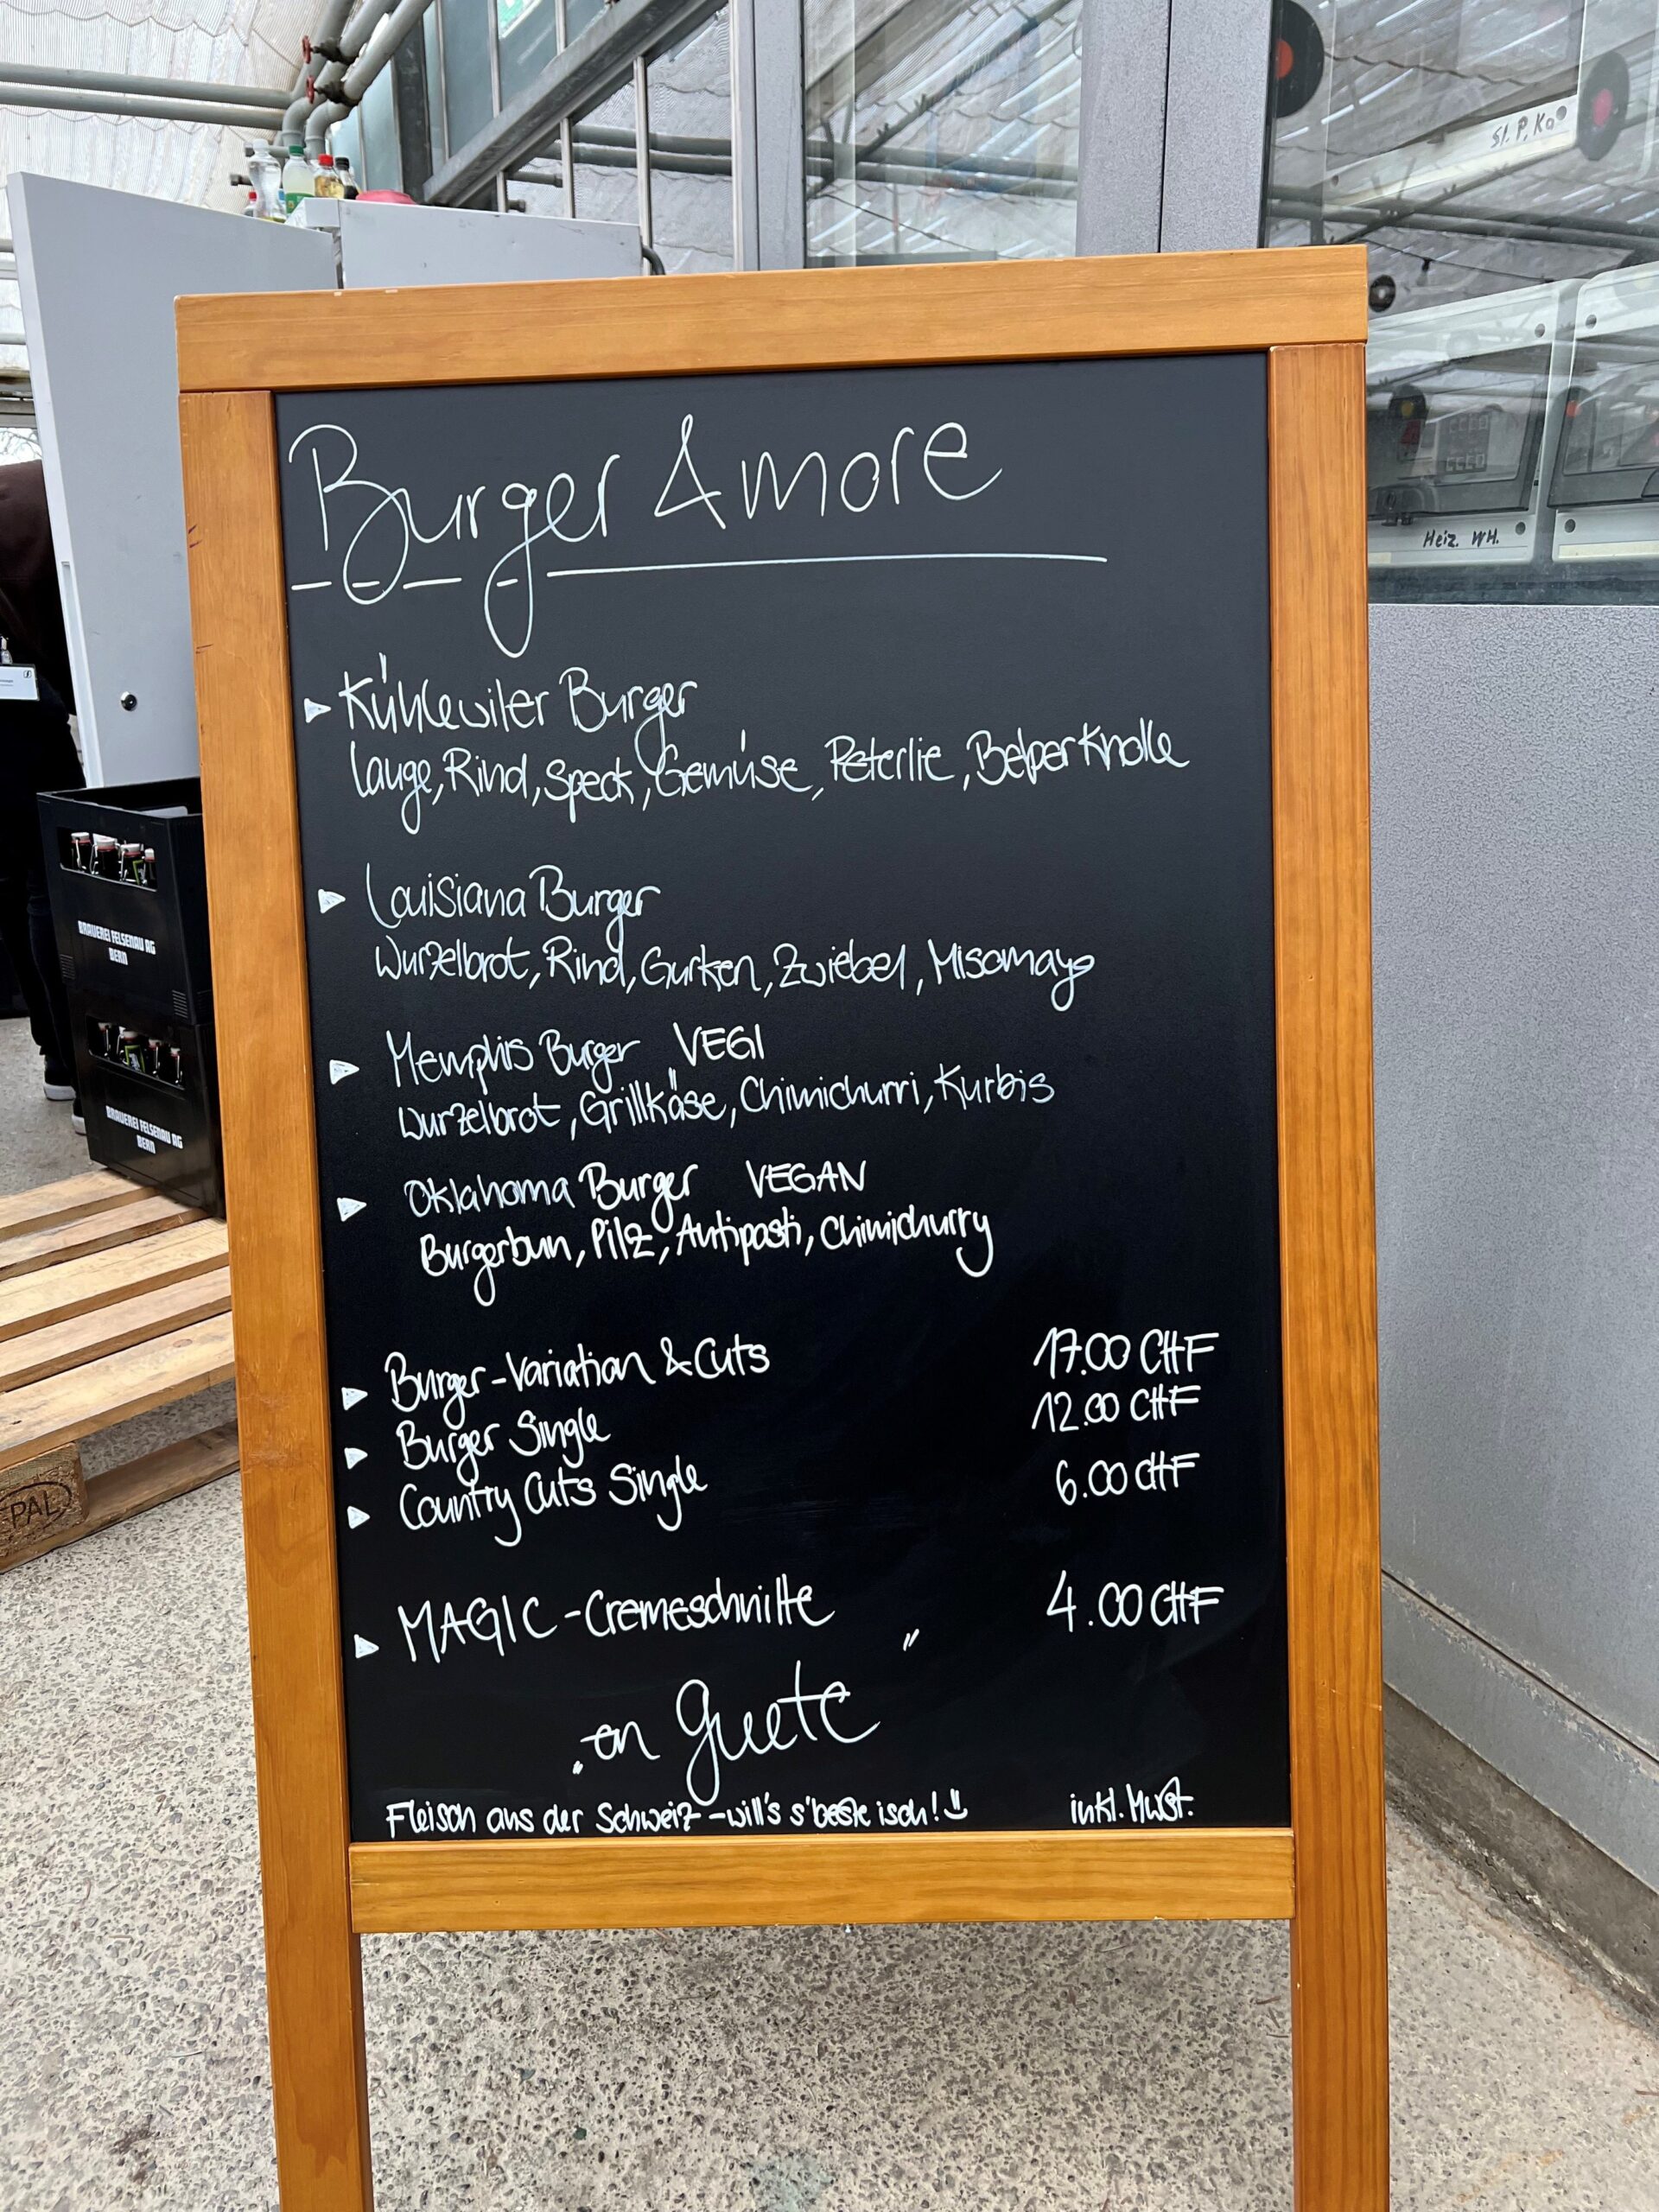 Burger Amore
Kühlewiler Burger
Lauge, Rind, Speck, Gemüse, Peterlie, Belper Knolle
Louisiana Burger
Wurzelbrot, Rind, Gurken, Zwiebel, Misomayo
Memphis Burger VEGI
Wurzelbrot, Grillkäse, Chimichurri, Kurbis
Oklahoma Burger VEGAN
Burgerbun, Pilz, Antipasti, Chimichurry
Burger-Variation & Cuts 17.00 CHF
Burger Single 12.00 CHF
Country Cuts Single 6.00 CHF
MAGIC-Cremeschnitte 4.00 CHF
„en guete"
Fleisch aus der Schweiz - will's s'beste isch! inkl. MwSt.
St. P, Ka
Heiz. WH.
BRAUEREI FELSENAU AG
BERN
BRAUEREI FELSENAU AG
BERN
PAL